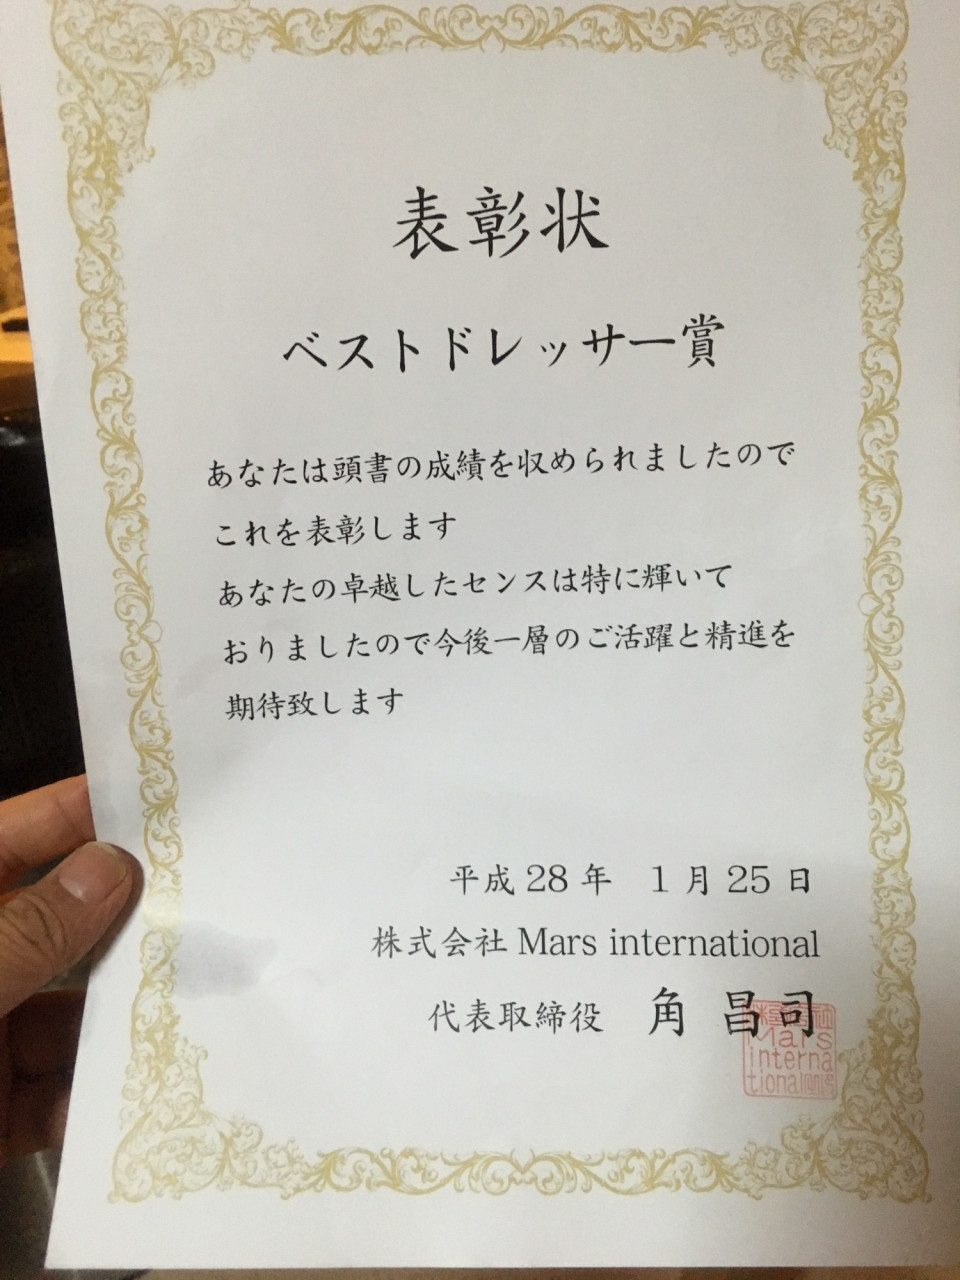 表彰状
ベストドレッサー賞
あなたは頭書の成績を収められましたので
これを表彰します
あなたの卓越したセンスは特に輝いて
おりましたので今後一層のご活躍と精進を
期待致します
平成 28 年 1 月 25 日
株式会社 Mars international
代表取締役 角 昌司
Mars
interna
tional